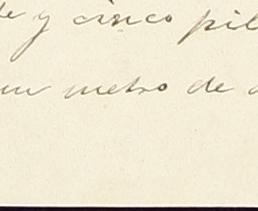 y cinco
un metro de